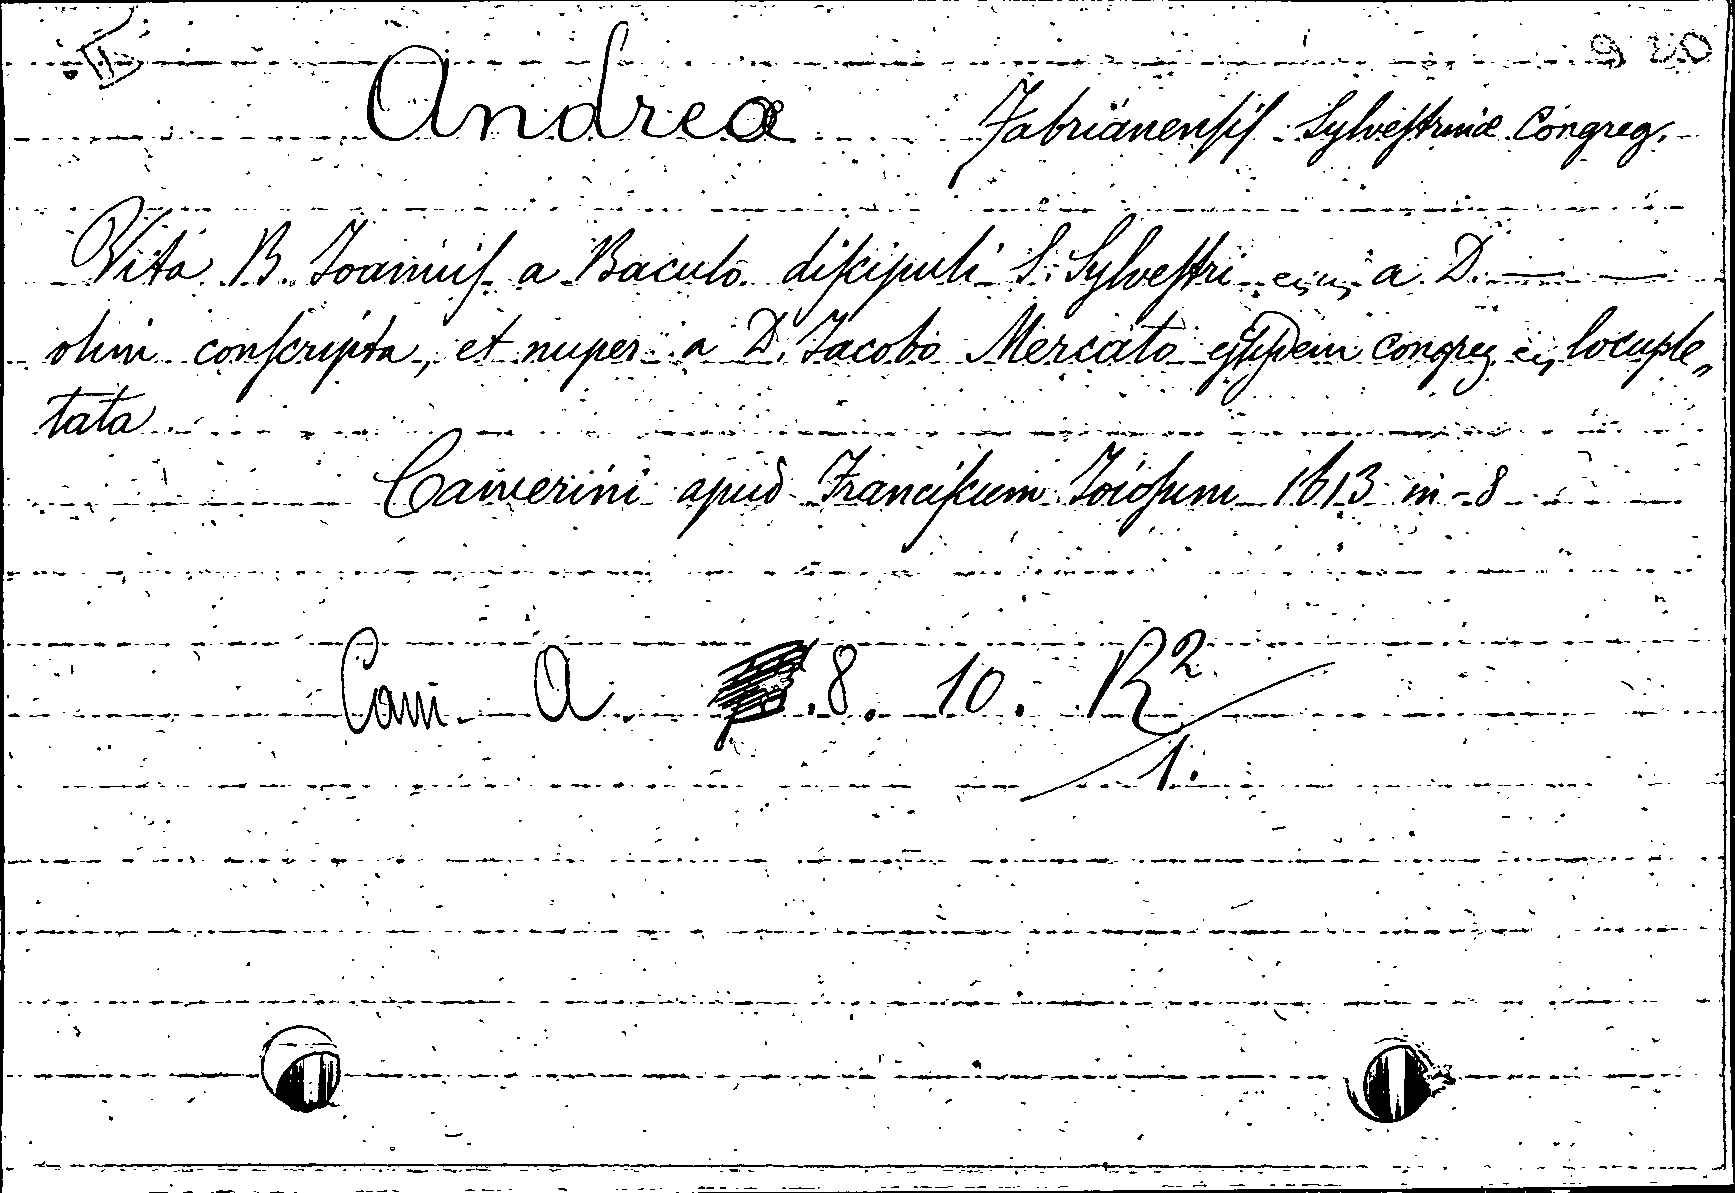 920
Andreæ Fabrianensis Sylvestrinæ Congreg.
Vita B. Joannis a Baculo discipuli S. Sylvestri a D. — —
olim conscripta, et nuper a D. Jacobo Mercato ejusdem congreg locuple„
tata
Camerini apud Franciscum Joiosum 1613 in-8
Cam. A. .8. 10. R2
1.